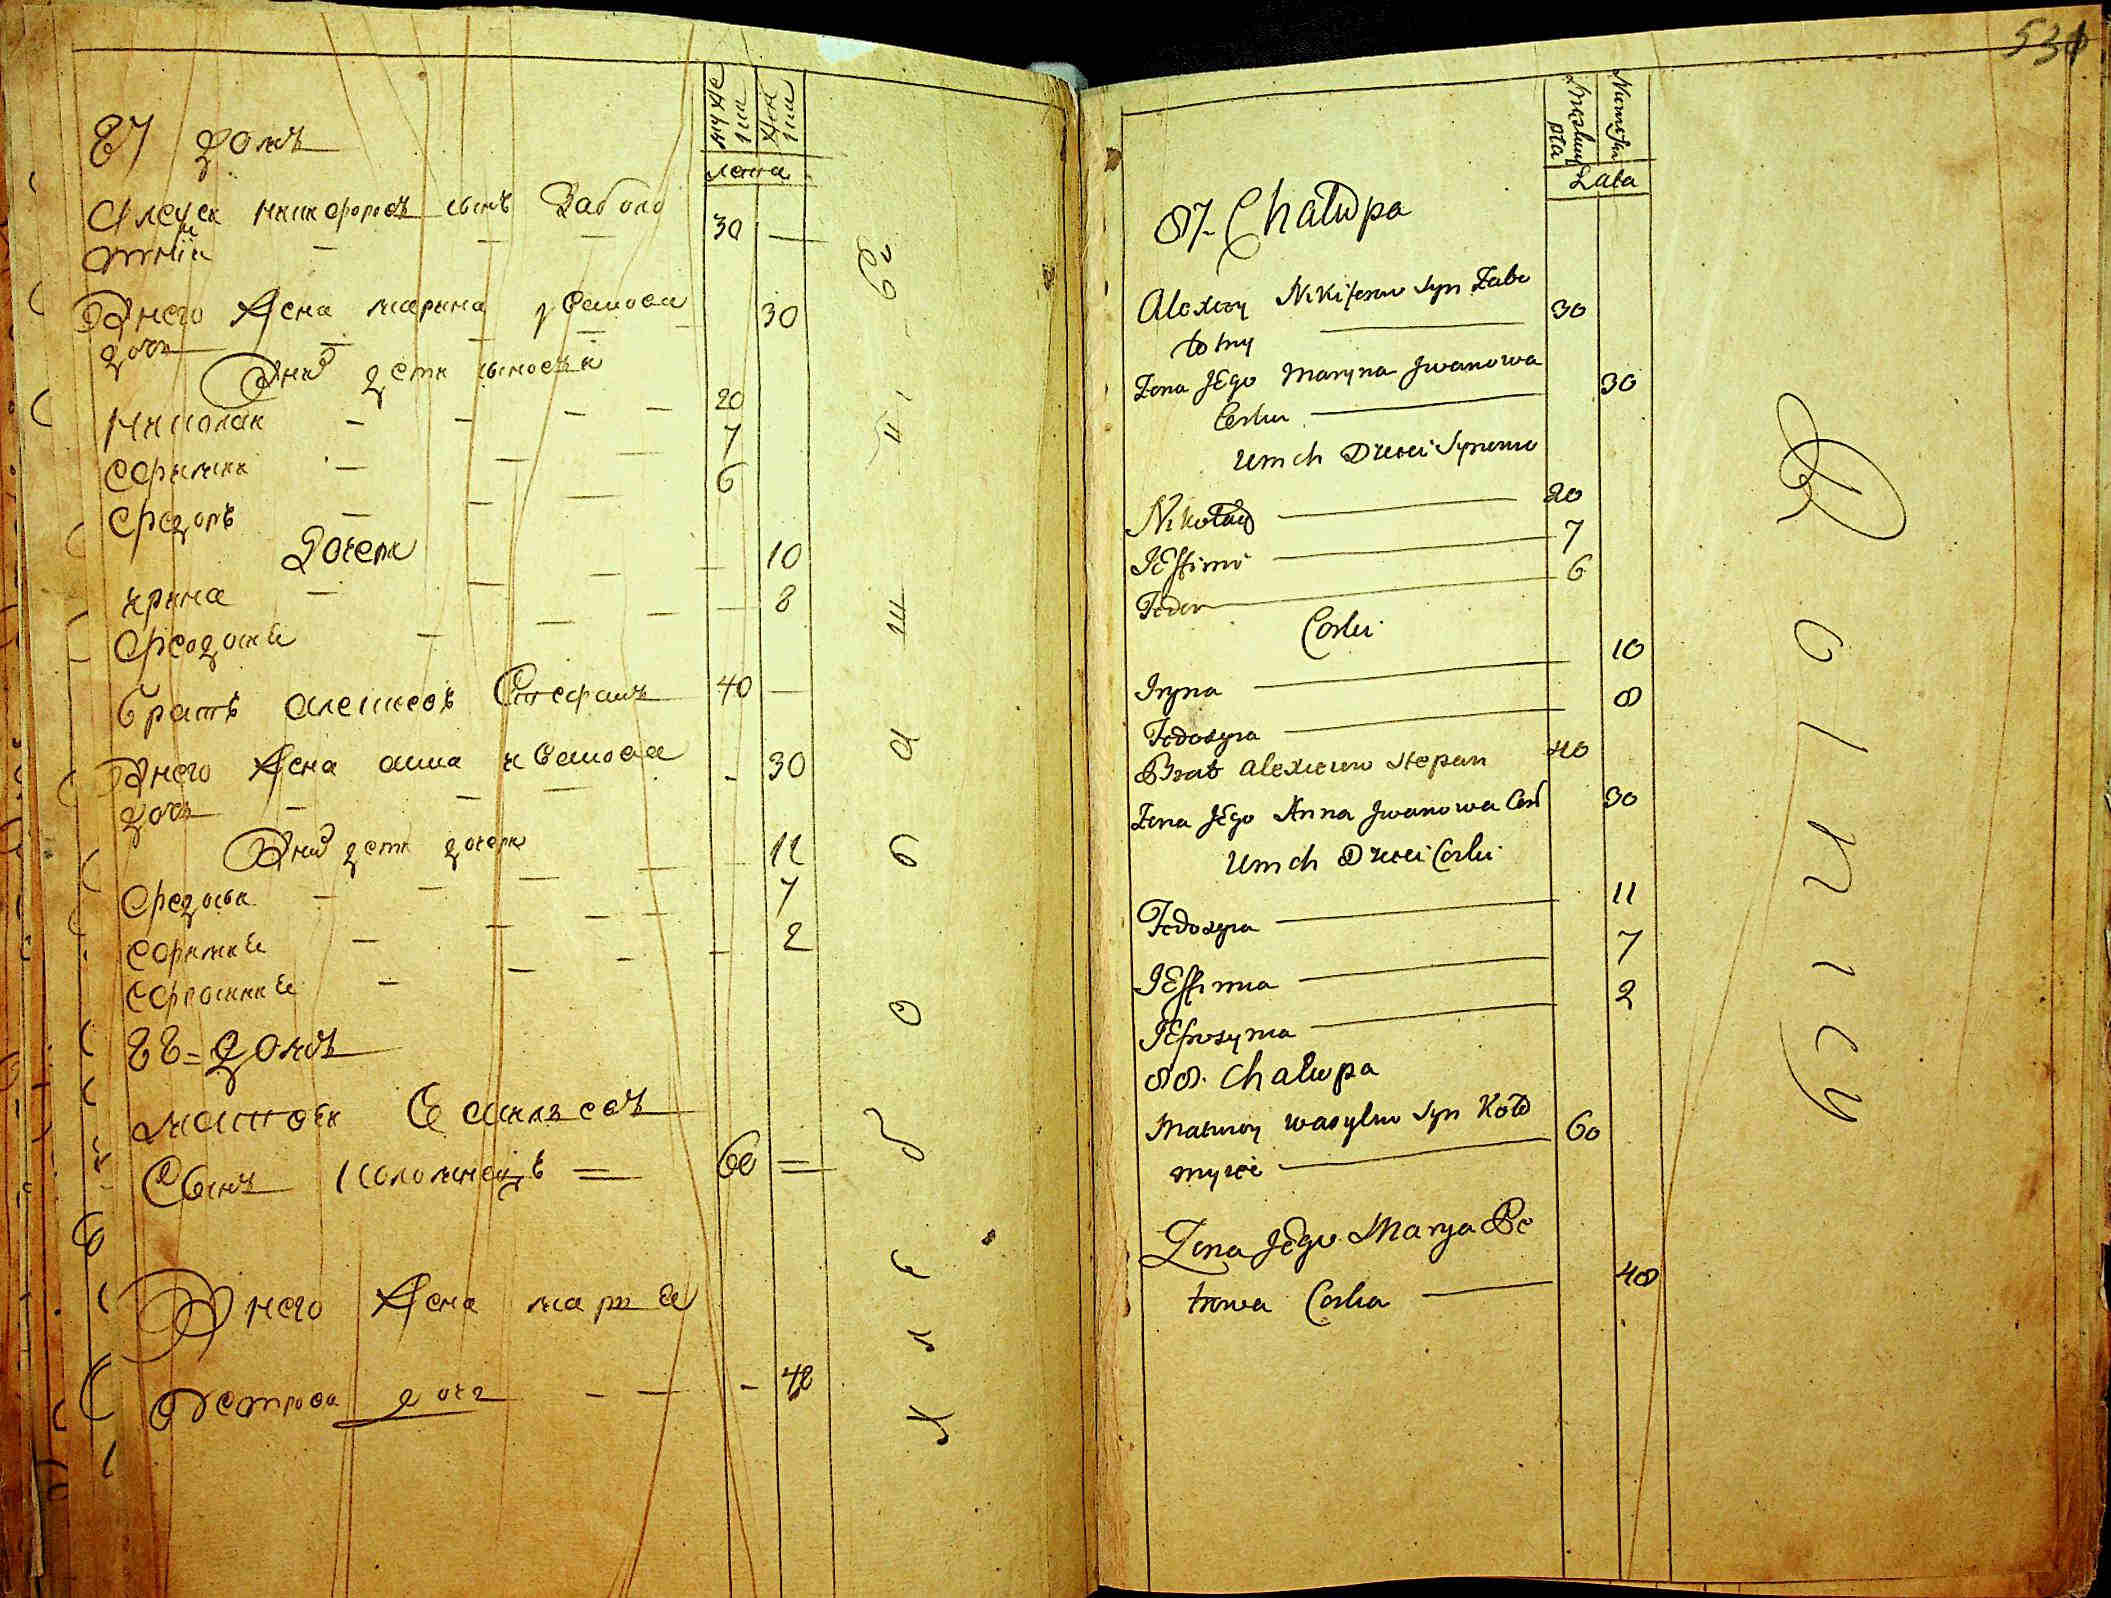 87 домъ
муже
ска
жен
ска
лета
Алеѯеи никифоровъ сынъ Заболо
тнїи
30
Унего жена марина іванова
30
дочь
Униⷯ дети сыновья
николаи
20
ефимии
7
федоръ
6
Дочери
ирина
10
феодосия
8
братъ алеѯеевъ Стефанъ
40
Унего жена анна иванова
30
дочь
Униⷯ дети дочери
федосья
11
ефимия
7
ефросиния
2
88 = Домъ
матвеи Василъевъ
Сынъ коломиецъ =
60 =
Унего жена мария
Петрова дочь
48
Хлебопашецъ
531
Męskiey
płci
Niewieściey
Lata
87. Chałupa
Alexiey Nikiforow Syn Zabo
30
łotny
Żona Jego Maryna Jwanowa
30
Corka
U nich Dzieci Synowie
Nikołay
20
JEffimi
7
Fedor
6
Corki
Iryna
10
Fedosyia
8
Brat Alexieiow Stepan
40
Żona Jego Anna Jwanowa Cor
30
U nich Dzieci Corki
Fedosyia
11
JEffimia
7
JEfrosynia
2
88. Chałupa
Matwiey Wasylow Syn Koło
60
myiec
Żona Jego Marya Pe
trowa Corka
48
Rolnicy